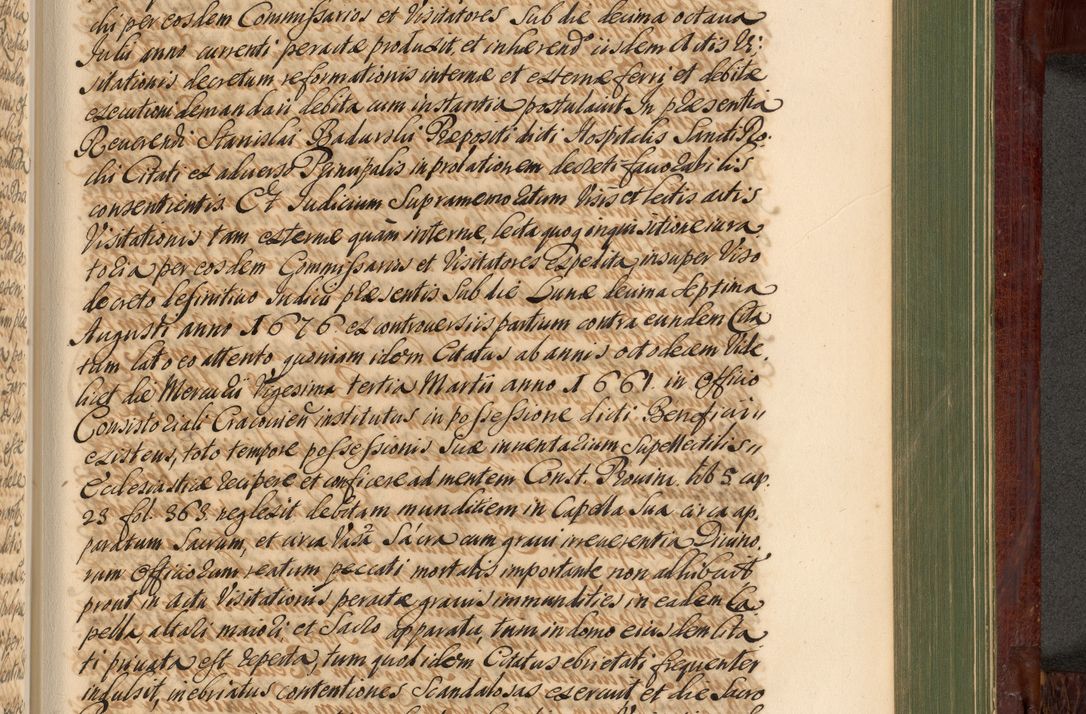 chi per eosdem Commissarios et Visitatores Sub die decima octaua
Julii anno currenti peractæ produxit, et inhærend iisdem Actis Vi:
sitationis decretum reformationis internæ et externæ ferri et debitæ
executioni demandari debita cum instantia postulauit In præsentia
Reuerendi Stanislai Badurski Præpositi dicti Hospitalis Sancti Ro-
chi Citati ex aduerso Principalis in prolationem decreti fauorabilis
consentientis. Et Judicium Supramemoratum Visis et lectis actis
Visitationis tam externæ quàm internæ, lecta quoq inquisitione iura
toria per eosdem Commissarios et Visitatores Expedita, insuper Viso
decreto definitiuo Judicii præsentis Sub die Lunæ decima Septima
Augusti anno 1676 ex controuersiis partium contra eundem Cita
tum lato eo attento quoniam idem Citatus ab annis octodecem Vide,
licet die Mercurii Vigesima tertia Martii anno 1661. in Officio
Consistoriali Cracouien institutus in possessione dicti Beneficii
existens, toto tempore possessionis Suæ inuentarium Supellectilis
Ecclesiasticæ recipere et conficere ad mentem Const. Prouin. lib 5 cap.
23 fol. 363. neglexit debitam mundiciem in Capella Sua circa ap,
paratum Sacrum, et circa Vasa Sácra cum graui irreuerentia Diuino,
rum Officiorum reatum peccati mortalis importante non adhibuit
prout in actu Visitationis peractæ grauis immundities in eadem Ca
pella, altari maiori, et Sacro apparatu, tum in domo eiusdem Cita
ti priuata est reperta, tum quod idem Citatus ebrietati frequenter
indulsit, inebriatus contentiones Scandalosas exercuit et die Sacro